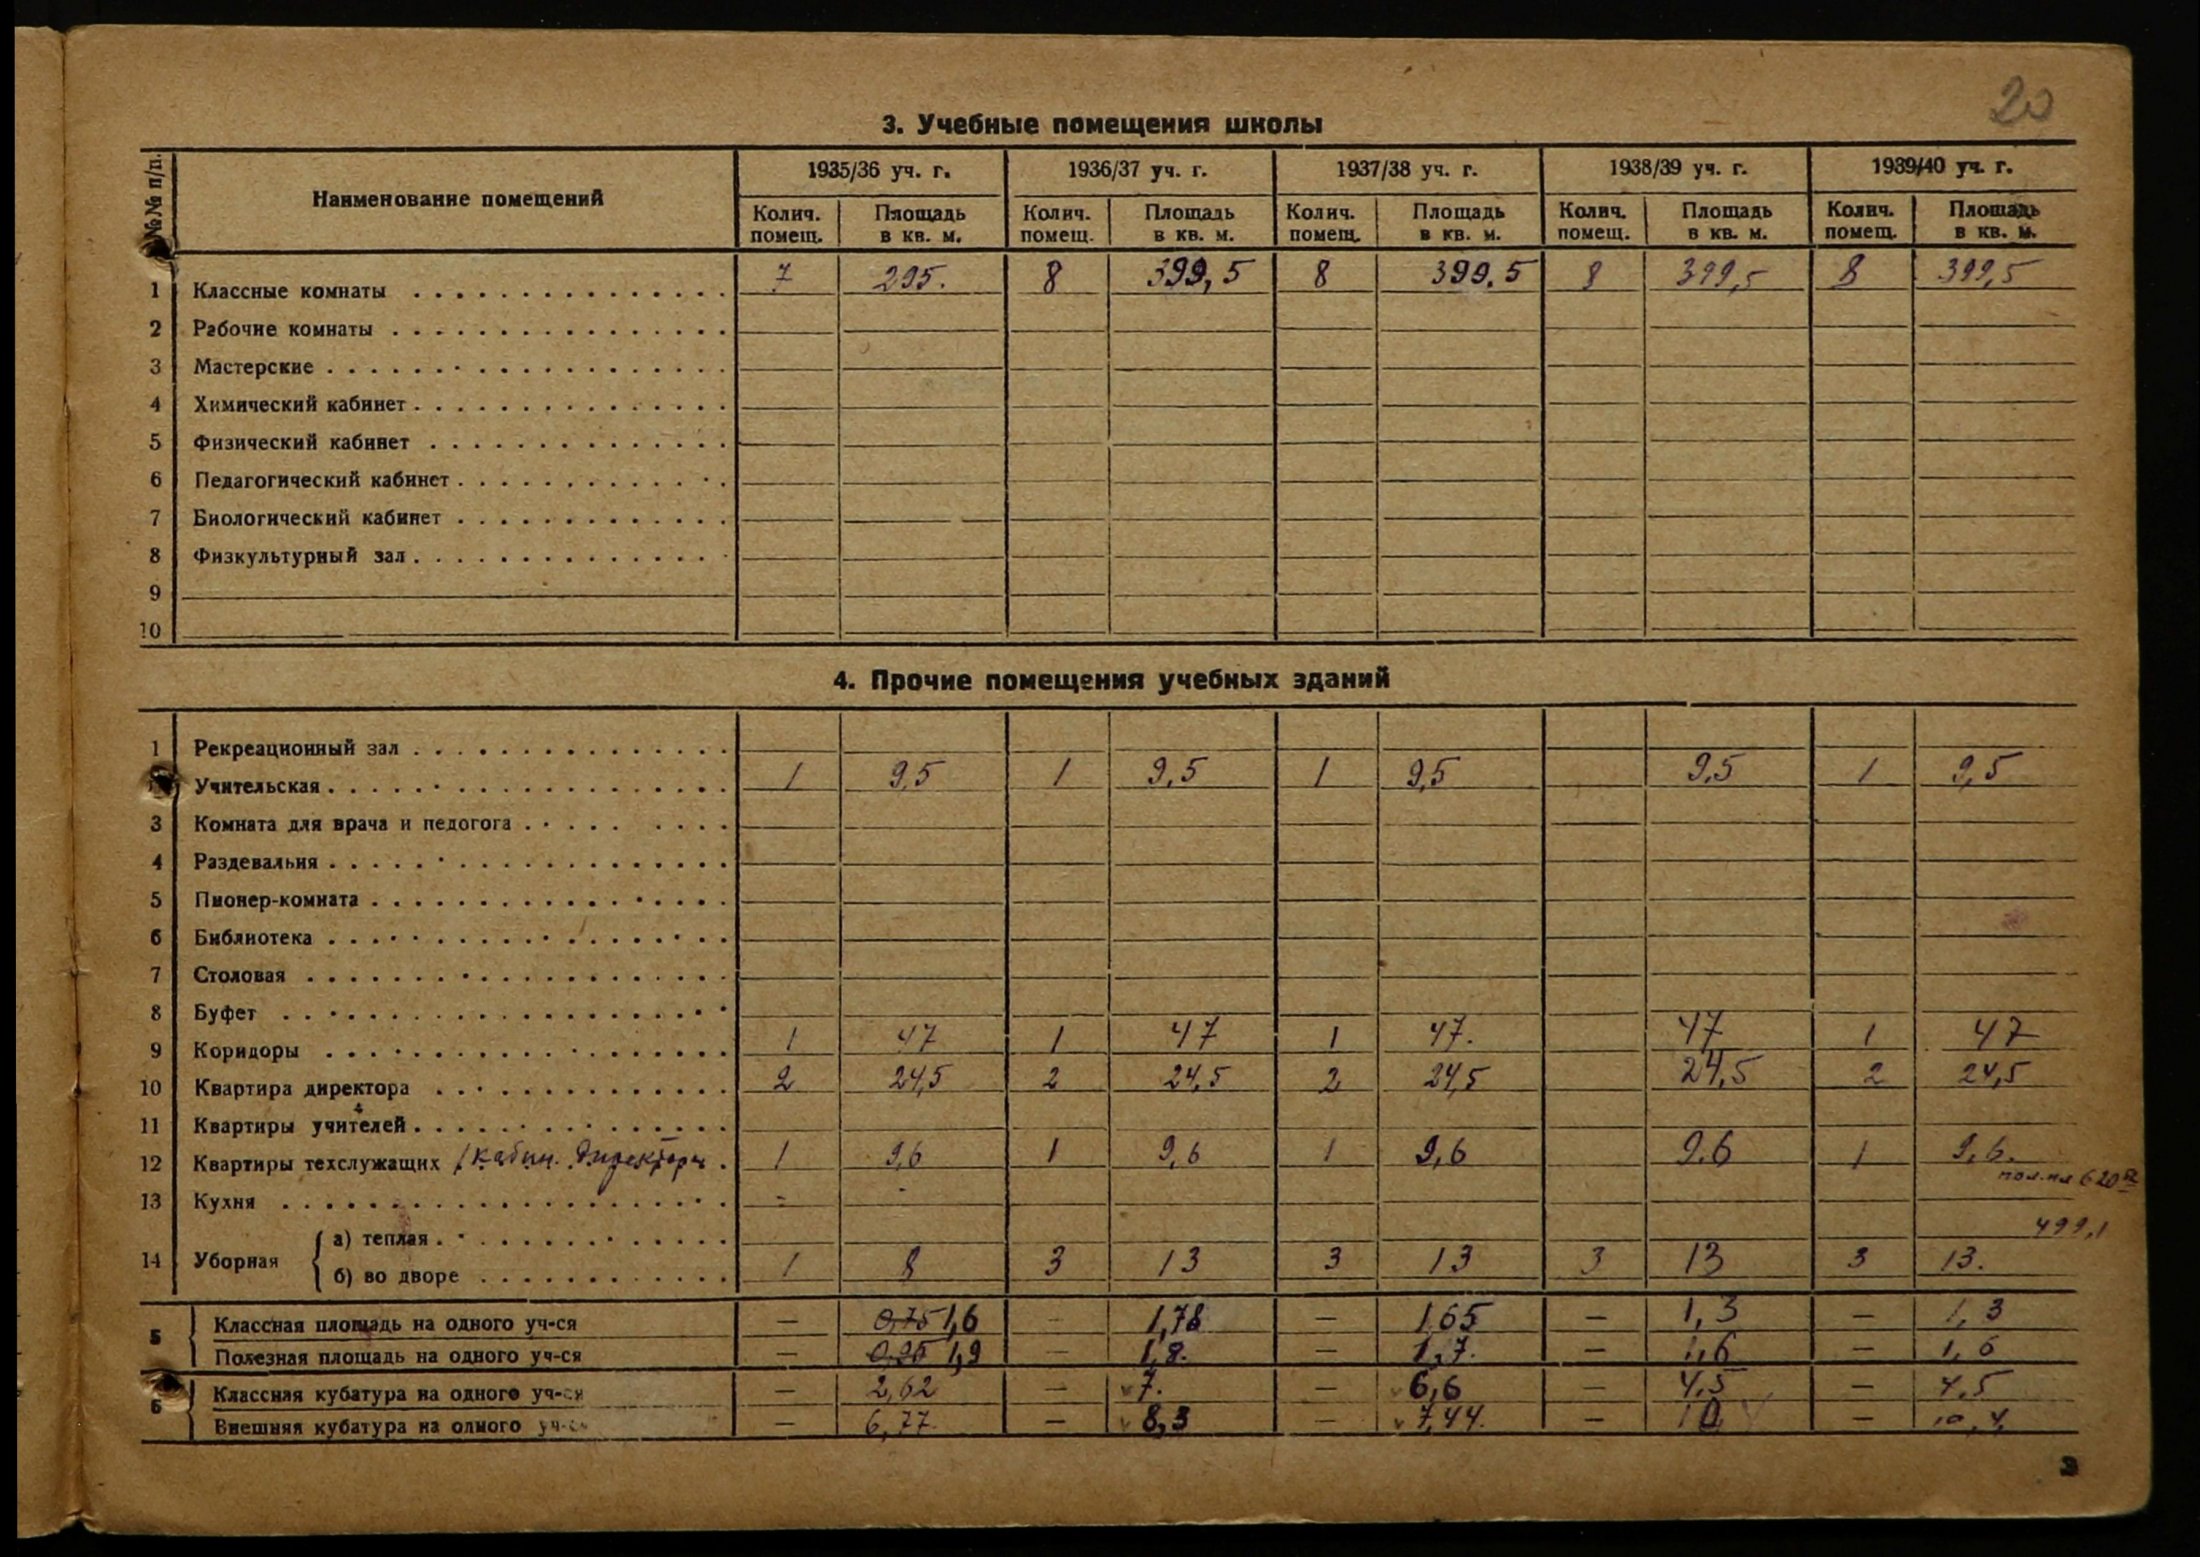 20
3. Учебные помещения школы
№№ п/п. Наименование помещений 1935/36 уч. г. 1936/37 уч. г. 1937/38 уч. г. 1938/39 уч. г. 1939/40 уч. г.
Колич. помещ. Площадь в кв. м. Колич. помещ. Площадь в кв. м. Колич. помещ. Площадь в кв. м. Колич. помещ. Площадь в кв. м. Колич. помещ. Площадь в кв. м.
1 Классные комнаты 7 295. 8 399,5 8 399,5 8 399,5 8 399,5
2 Рабочие комнаты
3 Мастерские
4 Химический кабинет
5 Физический кабинет
6 Педагогический кабинет
7 Биологический кабинет
8 Физкультурный зал
9
10
4. Прочие помещения учебных зданий
1 Рекреационный зал
Учительская 1 9,5 1 9,5 1 9,5 9,5 1 9,5
3 Комната для врача и педогога
4 Раздевальня
5 Пионер-комната
6 Библиотека
7 Столовая
8 Буфет
9 Коридоры 1 47 1 47 1 47. 47 1 47
10 Квартира директора 2 24,5 2 24,5 2 24,5 24,5 2 24,5
11 Квартиры учителей
12 Квартиры техслужащих /кабин. директора 1 9,6 1 9,6 1 9,6 9,6 1 9,6.
13 Кухня - - пол. пл 620
499,1
14 Уборная а) теплая
б) во дворе 1 8 3 13 3 13 3 13 3 13.
5 Классная площадь на одного уч-ся — 0,75 1,6 — 1,78 — 1,65 — 1,3 — 1,3
Полезная площадь на одного уч-ся — 1,9 — 1,8. — 1,7. — 1,6 — 1,6
6 Классная кубатура на одного уч-ся — 2,62 — v 7. — v 6,6 — 4,5 — 4,5
Внешняя кубатура на одного уч-ся — 6,77. — v 8,3 — v 7,44. — 10 — 10,4.
3